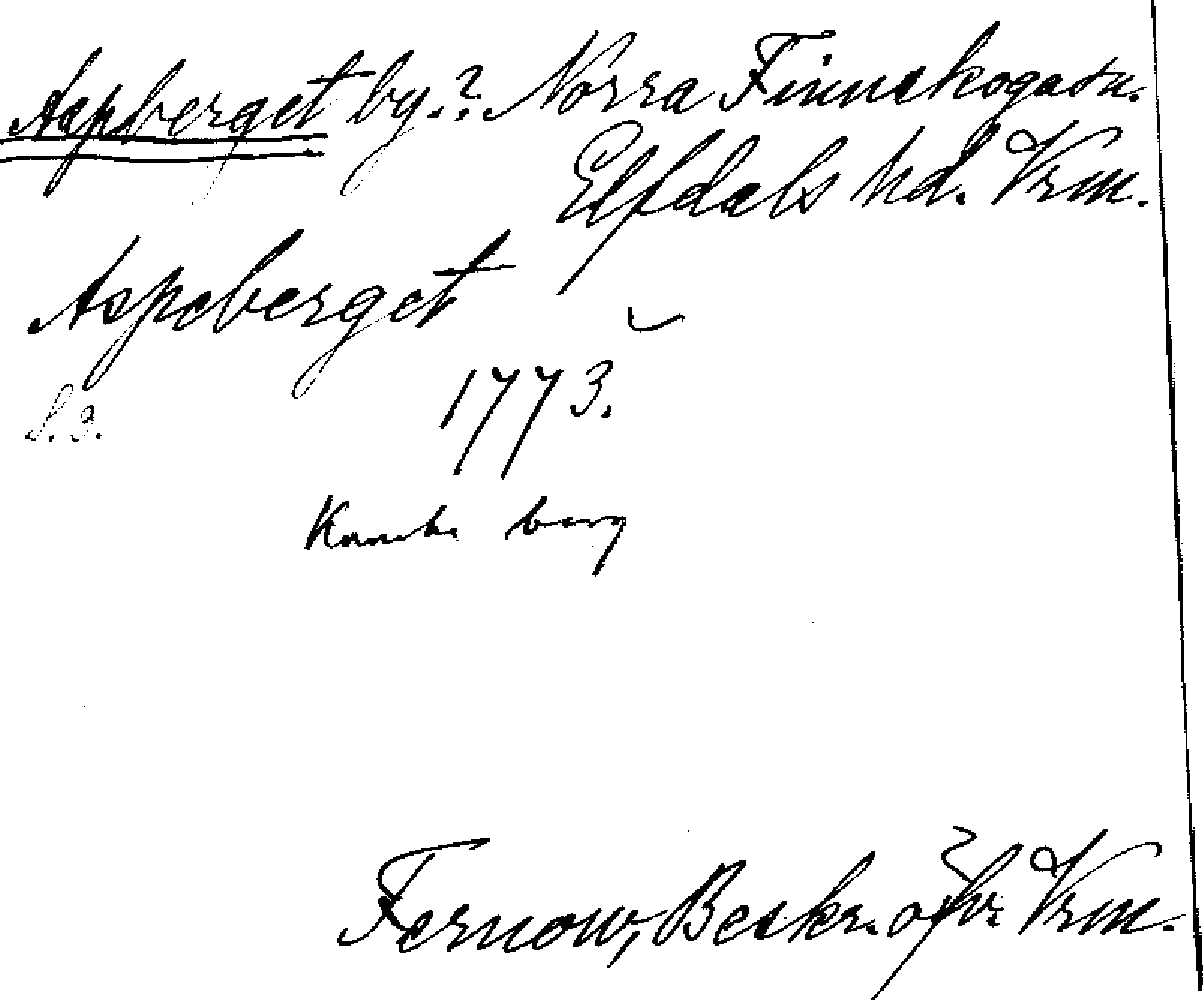 Aspberget by.? Norra Finnskoga sn.
Elfdals hd. Vrm.
Aspeberget
1773.
S. 3.
Kanske berg
Fernow, Beskr. öfv. Vrm.